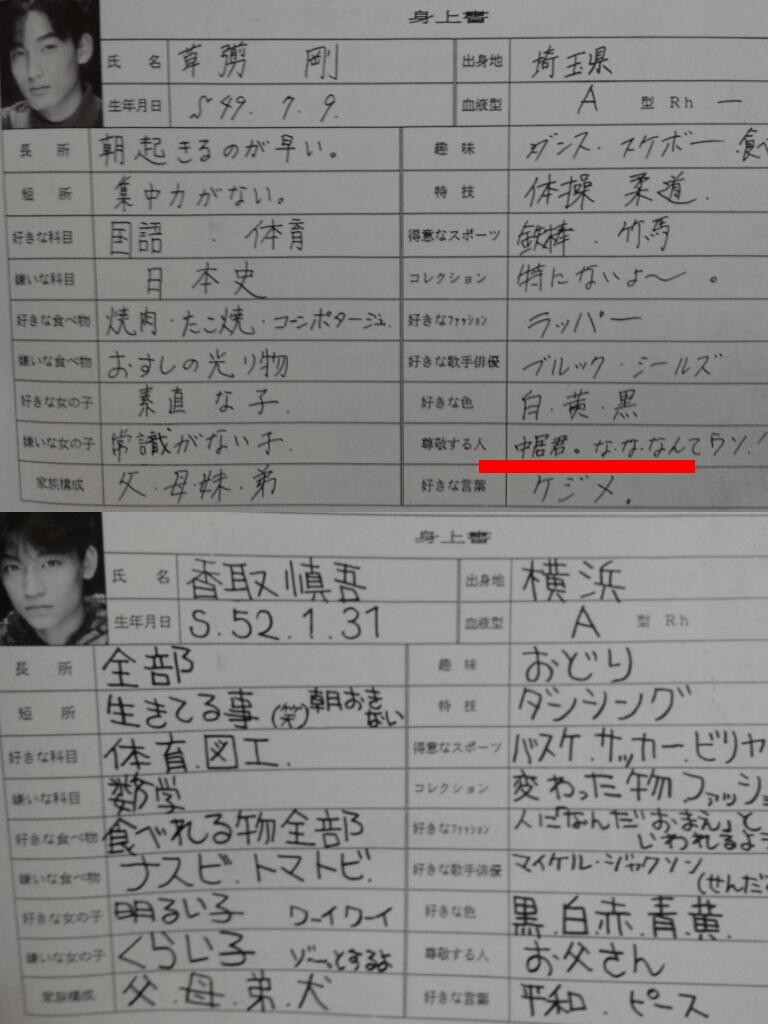 身上書
氏 名 草彅 剛 出身地 埼玉県
生年月日 S49. 7. 9. 血液型 A 型 Rh ー
長 所 朝起きるのが早い。 趣 味 ダンス・スケボー・食べ
短 所 集中力がない。 特 技 体操 柔道.
好きな科目 国語 . 体育 得意なスポーツ 鉄棒 . 竹馬
嫌いな科目 日本史 コレクション 特にないよ〜 。
好きな食べ物 焼肉・たこ焼・コーンポタージュ. 好きなファッション ラッパー
嫌いな食べ物 おすしの光り物 好きな歌手俳優 ブルック・シールズ
好きな女の子 素直な子. 好きな色 白・黄・黒
嫌いな女の子 常識がない子. 尊敬する人 中居君。な・な・なんてウソ!
家族構成 父・母・妹・弟 好きな言葉 ケジメ.
身上書
氏 名 香取慎吾 出身地 横浜
生年月日 S.52.1.31 血液型 A 型 Rh
長 所 全部 趣 味 おどり
短 所 生きてる事(笑)朝おきない 特 技 ダンシング
好きな科目 体育.図工. 得意なスポーツ バスケ.サッカー.ビリヤ
嫌いな科目 数学 コレクション 変わった物ファッショ
好きな食べ物 食べれる物全部 好きなファッション 人に「なんだおまえ」と
いわれるよう
嫌いな食べ物 ナスビ.トマトビ. 好きな歌手俳優 マイケル・ジャクソン
(せんだ
好きな女の子 明るい子 ワーイワーイ 好きな色 黒.白.赤.青.黄.
嫌いな女の子 くらい子 ゾ〜っとするよ 尊敬する人 お父さん
家族構成 父.母.弟.犬 好きな言葉 平和.ピース